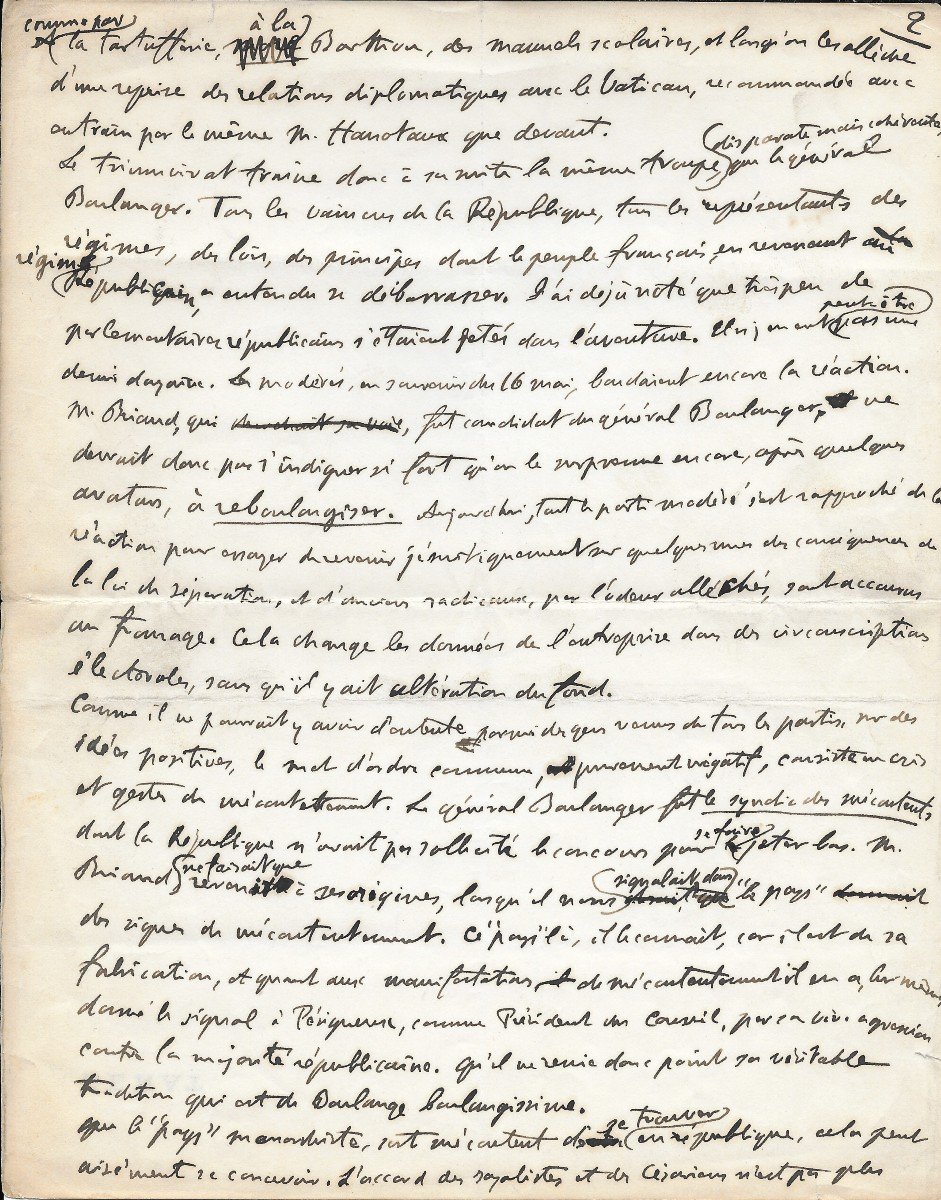 2
comme par
à la
la tartufferie, Barthou, des manuels scolaires, et lorsqu'on les allèche
d'une reprise des relations diplomatiques avec le Vatican, recommandée avec
entrain par le même M. Hanotaux que devant.
disparate mais cohérente,
Le triumvirat traîne donc à sa suite la même troupe que le général
Boulanger. Tous les vaincus de la République, tous les représentants des
régimes, des lois, des principes dont le peuple français, en revenant au
régime
Républicain, a entendu se débarrasser. J'ai déjà noté que très peu de
peut-être
parlementaires républicains s'étaient jetés dans l'aventure. Il n'y en eut pas une
demi douzaine. Les modérés, en souvenir du 16 mai, boudaient encore la réaction.
M. Briand, qui cherchait sa voie, fut candidat du général Boulanger, ne
devrait donc pas s'indigner si fort qu'on le surprenne encore, après quelques
avatars, à reboulangiser. Aujourd'hui, tout le parti modéré s'est rapproché de la
réaction pour essayer de revenir jésuitiquement sur quelques unes des conséquences de
la loi de séparation, et d'anciens radicaux, par l'odeur alléchés, sont accourus
au fromage. Cela change les données de l'entreprise dans des circonscriptions
électorales, sans qu'il y ait altération du fond.
Comme il ne pourrait y avoir d'entente parmi des gens venus de tous les partis, sur des
idées positives, le mot d'ordre commun, purement négatif, consiste en cris
et gestes de mécontentement. Le général Boulanger fut le syndic des mécontents
se faire
dont la République n'avait pas sollicité le concours pour jeter bas. M.
ne faisait que
signalait dans
Briand revenir à ses origines, lorsqu'il nous "le pays"
des signes de mécontentement. Ce "pays" là, il le connaît, car il est de sa
fabrication, et quant aux manifestations de mécontentement il en a, lui-même,
donné le signal à Périgueux, comme Président du Conseil, par sa vive agression
contre la majorité républicaine. Qu'il ne renie donc point sa véritable
tradition qui est de Boulange boulangissime.
se trouver
Que le "pays" monarchiste, soit mécontent de en république, cela peut
aisément se concevoir. L'accord des royalistes et des Césariens n'est pas plus